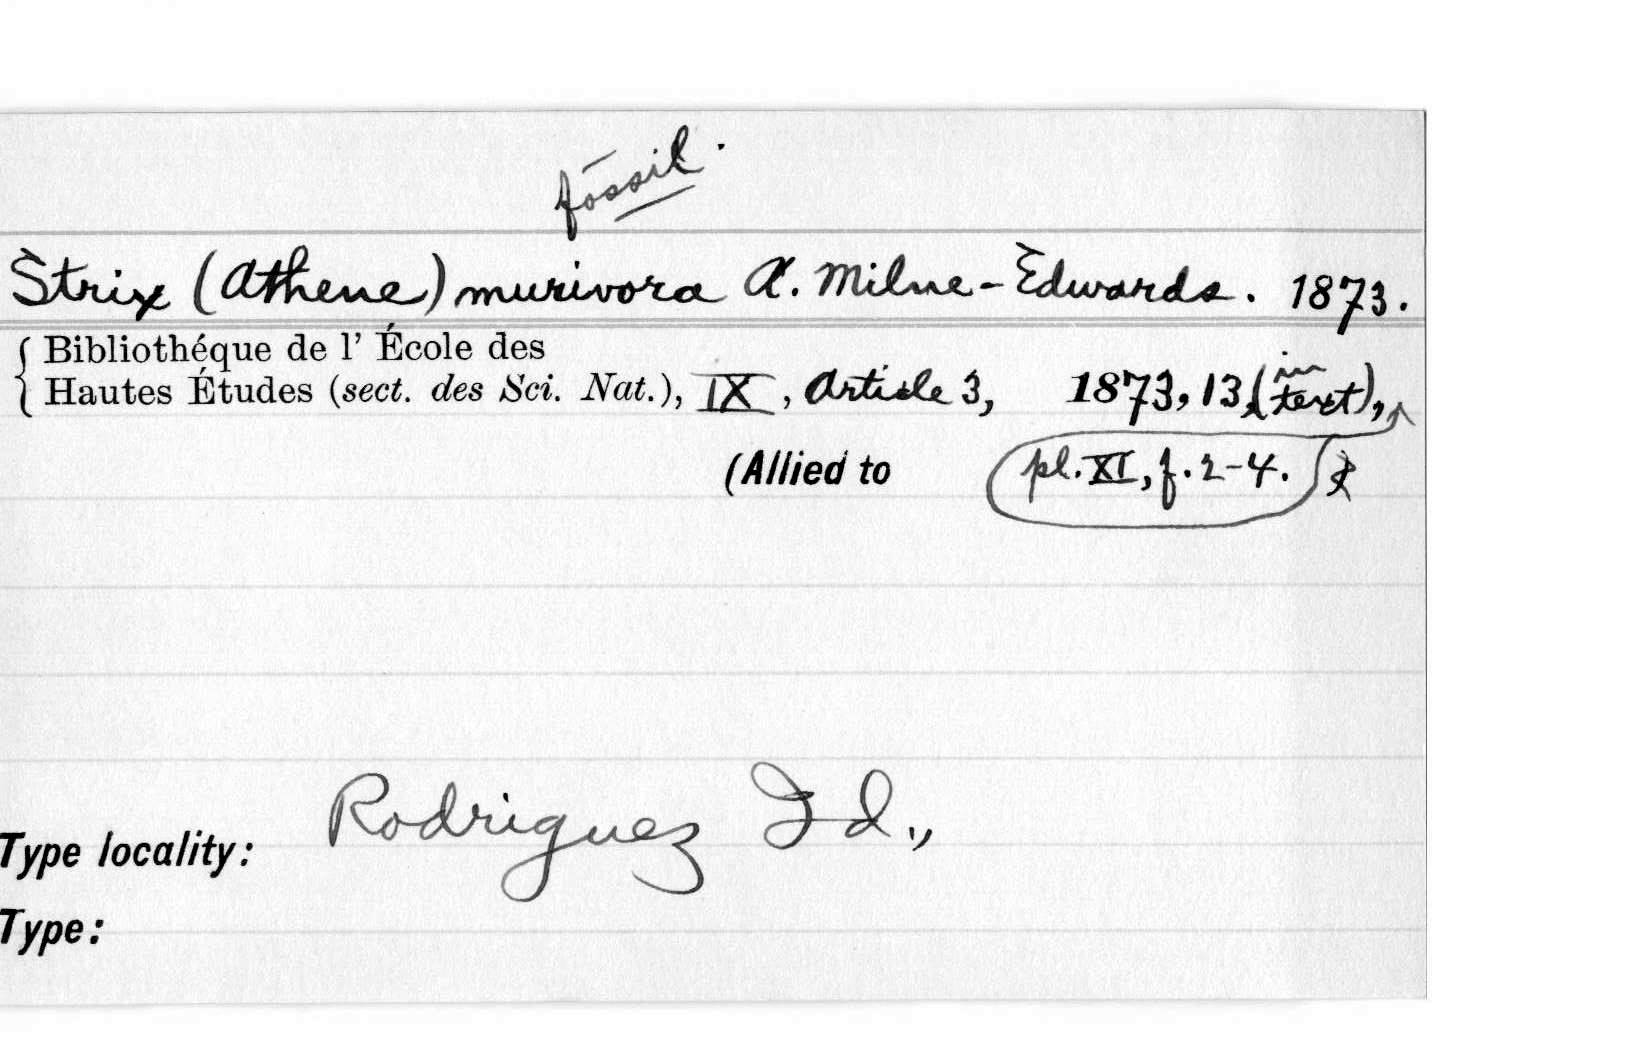 fossil.
Strix (Athene) murivora A. Milne-Edwards. 1873.
Bibliothéque de l' École des
Hautes Études (sect. des Sci. Nat.), IX, Article 3, 1873, 13 (in text),
(Allied to pl. XI, f. 2-4.
Type locality: Rodriguez Id.,
Type: